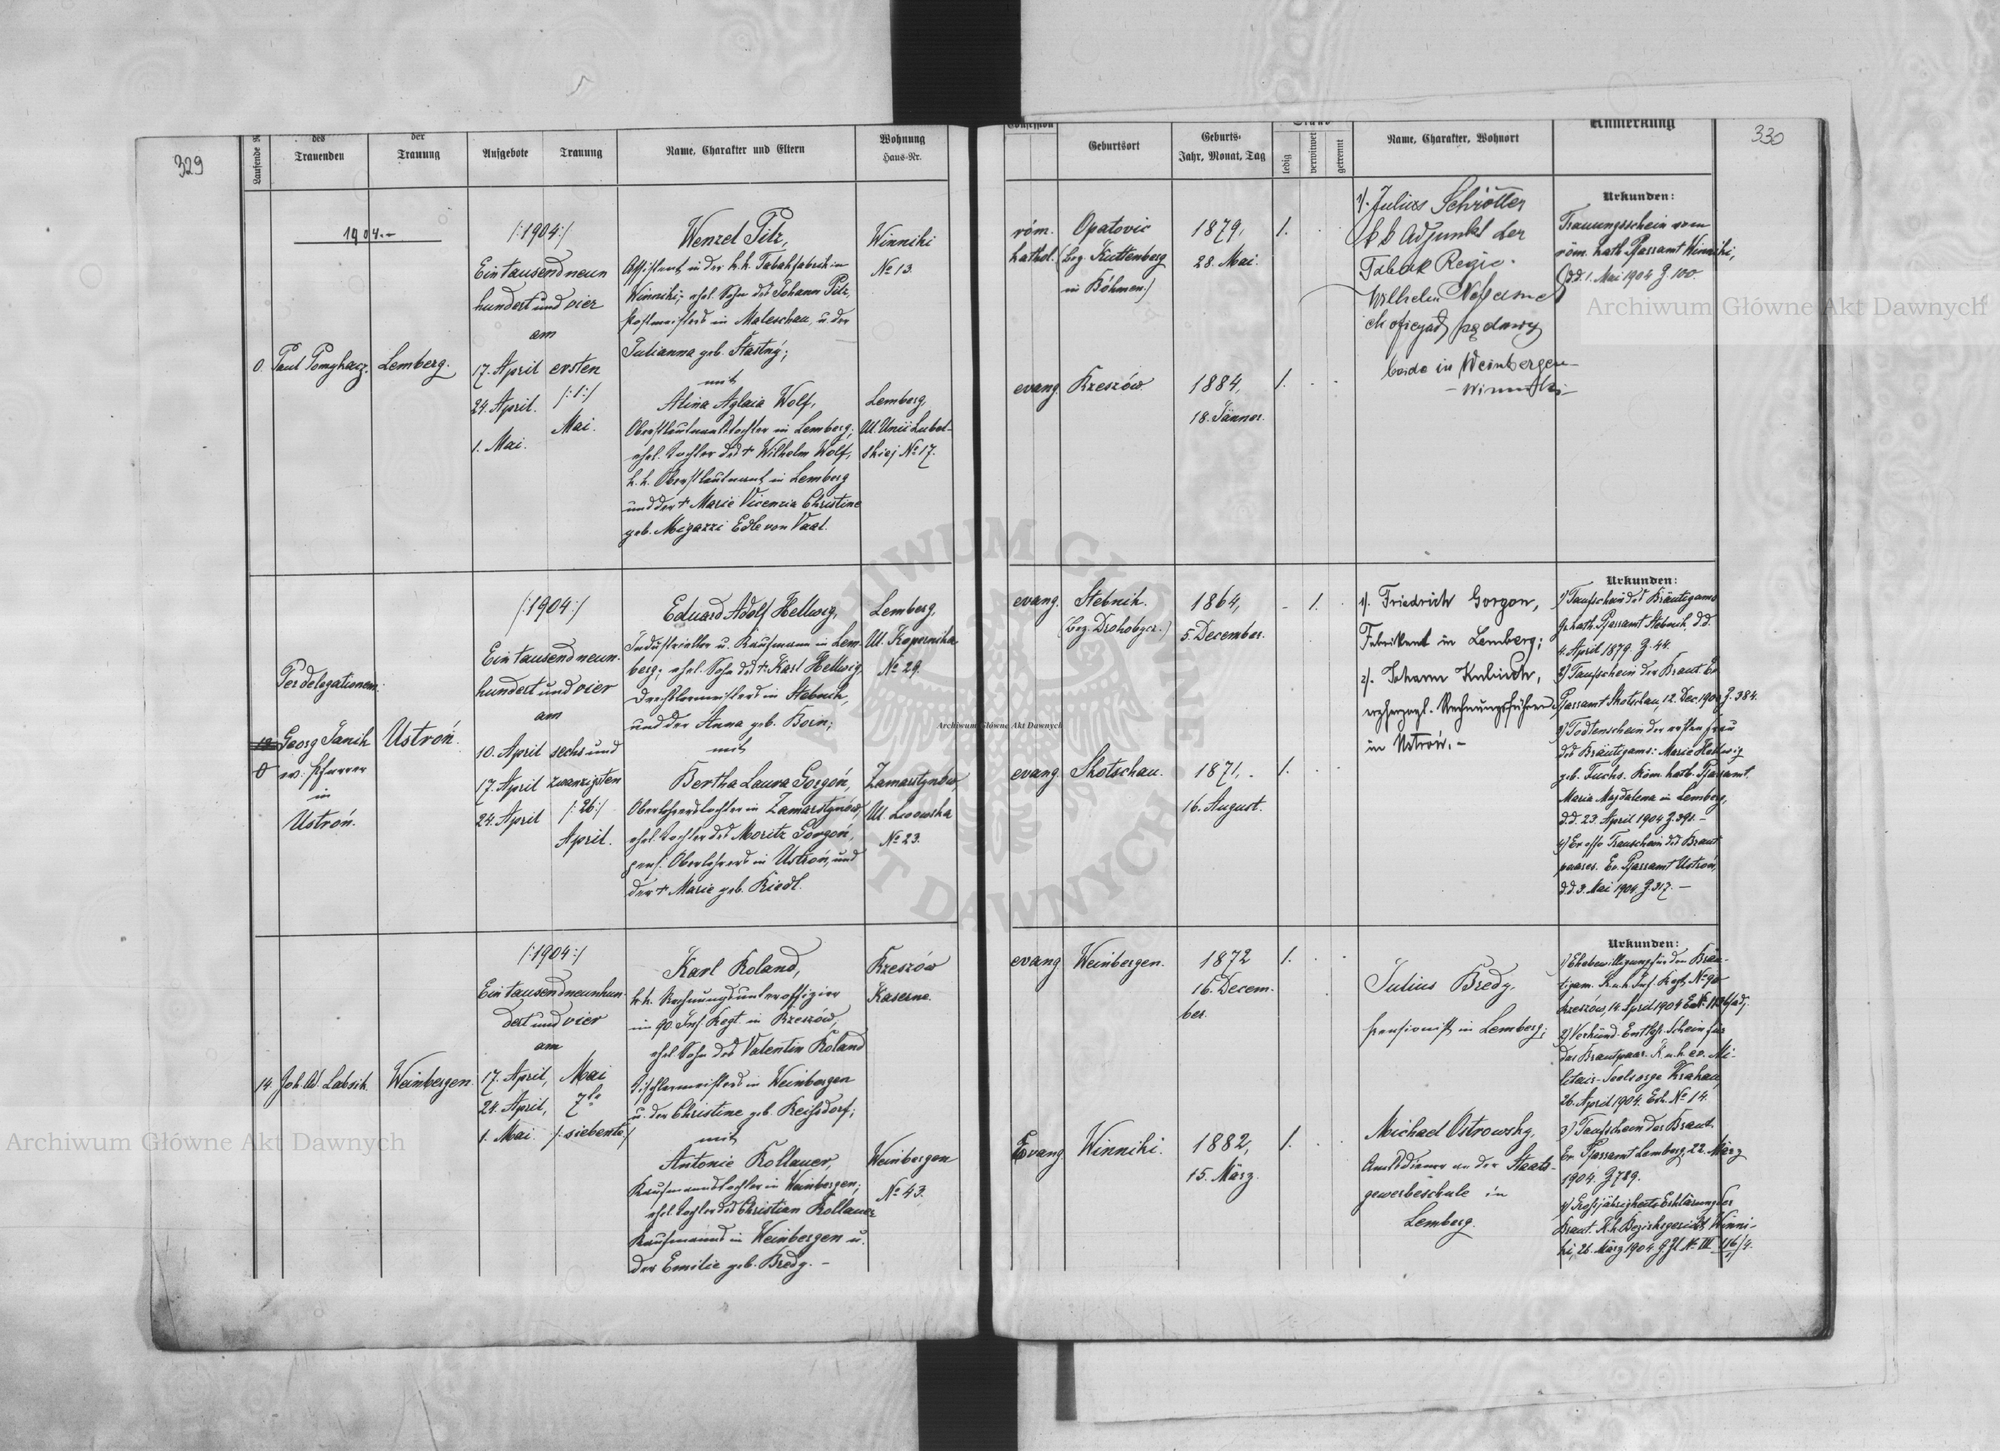 329
Laufende N
des
Trauenden
der
Trauung
Aufgebote
Trauung
Name, Charakter und Eltern
Wohnung
Haus-Nr.
1904.-
0. Paul Pomykacz.
Lemberg.
/:1904:/
Ein tausend neun
hundert und vier
am
17. April ersten
24. April. /:1:/
Mai.
1. Mai.
Wenzel Pilz,
Assistent in der k.k. Tabakfabrik in
Winniki; ehel. Sohn des Johann Pilz,
Postmeisters in Maleschau, u. der
Julianna geb. Stastný;
mit
Alina Aglaia Wolf,
Oberstleutnantstochter in Lemberg;
ehel. Tochter des + Wilhelm Wolf,
k.k. Oberstleutnant in Lemberg
und der + Marie Vicenzia Christine
geb. Migazzi Edle von Vaal.
Winniki
No 13.
Lemberg,
Ul. Unii Lubel-
skiej No 17.
Per delegationem.
13
0
Georg Janik
ev. Pfarrer
in
Ustroń.
Ustroń.
/:1904:/
Ein tausend neun-
hundert und vier
am
10. April sechs und
17. April zwanzigsten
24. April /:26:/
April.
Eduard Adolf Hellwig,
Industrieller u. Kaufmann in Lem-
berg; ehel. Sohn des + Karl Hellwig,
Drechslermeisters in Stebnik,
und der Anna geb. Korn;
mit
Bertha Laura Gorgoń,
Oberlehrerstochter in Zamarstynów,
ehel. Tochter des Moritz Gorgoń,
pens. Oberlehrers in Ustroń, und
der + Marie geb. Riedl.
Lemberg,
Ul. Kopernika
No 29.
Zamarstynów,
Ul. Lwowska
No 23.
14. Joh. Ad. Labsik.
Weinbergen.
/:1904:/
Ein tausend neunhun-
dert und vier
am
17. April, Mai
24. April, 7te
1. Mai. /:siebente:/
Karl Roland,
k.k. Rechnungsunteroffizier
im 90. Inf. Regt. in Rzeszów,
ehel. Sohn des Valentin Roland
Tischlermeisters in Weinbergen
u. der Christine geb. Reihsdorf;
mit
Antonie Kollauer,
Kaufmannstochter in Weinbergen;
ehel. Tochter des Christian Kollauer
Kaufmanns in Weinbergen u.
der Emilie geb. Bredy. -
Rzeszów
Kaserne.
Weinbergen
No 43.
330
Confession
Geburtsort
Geburts-
Jahr, Monat, Tag
Stand
ledig
verwitwet
getrennt
Name, Charakter, Wohnort
Anmerkung
röm.
kathol.
Opatovic
(Bez. Kuttenberg
in Böhmen.)
1879,
28. Mai.
1.
evang.
Rzeszów
1884,
18. Jänner.
1.
1). Julius Schrötter
kk Adjunkt der
Tabak Regie.
Wilhelm
Weinbergen
Urkunden:
Trauungsschein vom
röm. kath. Pfarramt Winniki,
(d.d. 1. Mai 1904 Z. 100.
evang.
Stebnik.
(Bez. Drohobycz.)
1864,
5 December.
1.
evang.
Skotschau.
1871,
16. August.
1.
1). Friedrich Gorgon,
Fabrikant in Lemberg;
2). Johann Kubisch,
erzherzogl. Rechnungsführer
in Ustroń. -
Urkunden:
1) Taufschein des Bräutigams
Gr. kath. Pfarramt Stebnik, d.d.
4. April 1879. Z. 44.
2) Taufschein der Braut Ev.
Pfarramt Skotschau, 12. Dec. 1900 Z. 384.
3) Todtenschein der ersten Frau
des Bräutigams: Marie Hellwig
geb. Fuchs. Röm. kath. Pfarramt
Maria Magdalena in Lemberg,
d.d. 23. April 1904 Z. 391. -
4) Ex offo Trauschein des Braut
paares. Ev. Pfarramt Ustroń,
d.d. 3. Mai 1904. Z. 317. -
evang
Weinbergen.
1872
16. Decem-
ber.
1.
Evang
Winniki.
1882,
15. März.
1.
Julius Bredy,
Pensionist in Lemberg;
Michael Ostrowsky,
Amtsdiener an der Staats-
gewerbeschule in
Lemberg.
Urkunden:
1) Ehebewilligung für den Bräu-
tigam. K.u.k. Inf. Regt. No 90
Rzeszów, 14. April 1904
2) Verkünd. Entlss. Schein für
das Brautpaar. K.u.k. ev. Mi-
litair-Seelsorge Krakau,
26. April 1904. Exh. No 14.
3) Taufschein der Braut.
Ev. Pfarramt Lemberg, 22. März
1904. Z. 789.
4) Großjährigkeits Erklärung der
Braut. K.k. Bezirksgericht Winni-
ki, 26. März 1904.
Archiwum Główne Akt Dawnych
Archiwum Główne Akt Dawnych
Archiwum Główne Akt Dawnych
ARCHIWUM GŁÓWNE AKT DAWNYCH